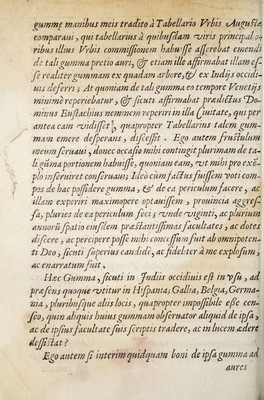 gummę manibus meis tradito à Tabellario Vrbis Augustæ
comparaui, qui tabellarius à quibusdam viris principal
ribus illius Vrbis commissionem habuisse asserebat emendi
de tali gumma pretio auri, & etiam ille affirmabat illam es-
se realiter gummam ex quadam arbore, & ex Indijs occidi-
uis deferri; At quoniam de tali gumma eo tempore Venetijs
minimè reperiebatur, & sicuti affirmabat prædictus Do-
minus Eustachius neminem reperiri in illa Ciuitate, qui per
antea eam vidisset, quapropter Tabellarius talem gum-
mam emere desperans, discessit. Ego autem frustulum
meum seruaui, donec occasio mihi contingit plurimam de ta-
li gūma portionem habuisse, quoniam eam, vt mihi pro exē-
plo inseruiret conseruaui; Ideò cum factus fuissem voti com-
pos de hac possidere gumma, & de ea periculum facere, ac
illam experiri maximopere optauissem, prouincia aggres-
sa, pluries de ea periculum feci, vnde viginti, ac plurium
annorū spatio eiusdem præstantissimas facultates, ac dotes
discere, ac percipere posse mihi concessum fuit ab omnipoten-
ti Deo, sicuti superius candidè, ac fideliter à me explosum,
ac enarratum fuit.
Hæc Gumma, sicuti in Indiis occidiuis est in vsu, ad
præsens quoque vtitur in Hispania; Gallia, Belgia, Germa-
nia, pluribusque aliis locis, quapropter impossibile eße cen-
seo, quin aliquis huius gummam obseruator aliquid de ipsa,
ac de ipsius facultate suis scriptis tradere, ac in lucem ædere
dessistat?
Ego autem si interim quidquam boni de ipsa gumma ad
aures